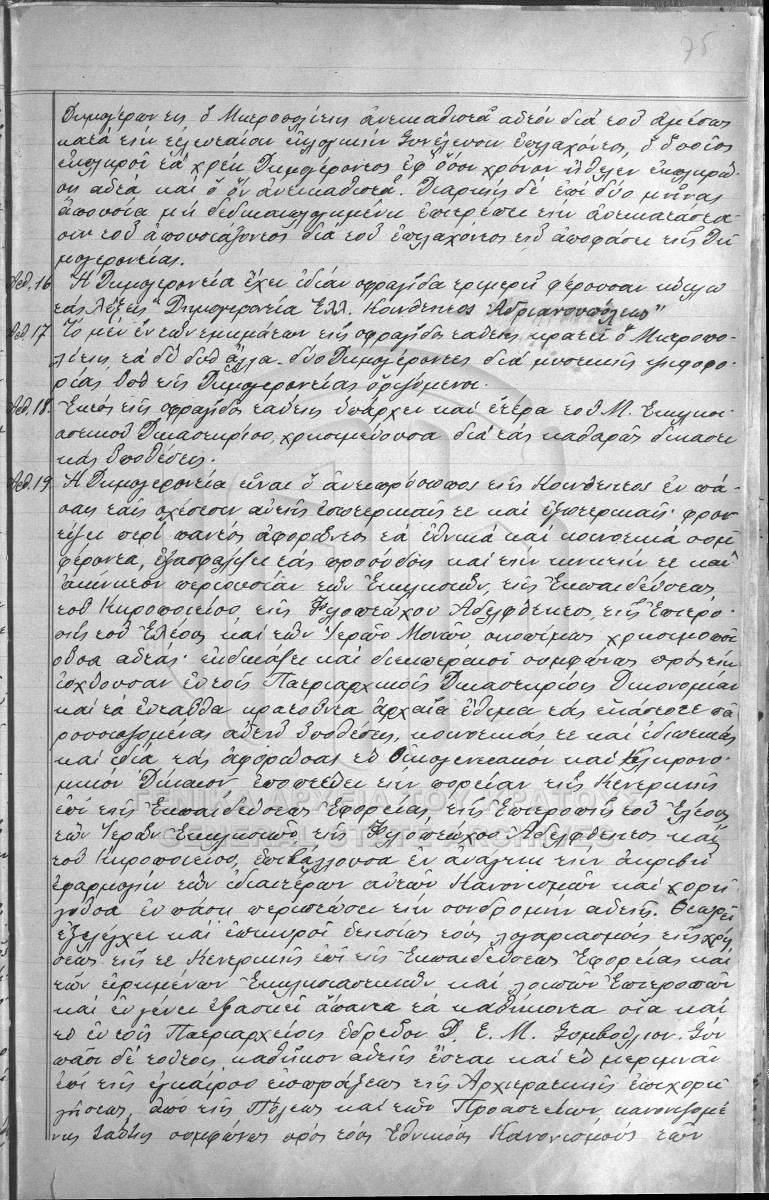 75
Δημογέροντες ὁ Μητροπολίτης ἀντικαθιστᾷ αὐτόν διά τοῦ ἀμέσως
κατά τήν τελευταίαν ἐκλογικήν Συνέλευσιν ἐπιλαχόντος, ὁ ὁποῖος
ἐκπληροῖ τά χρέη Δημογέροντος ἐφ' ὅσον χρόνον ἤθελεν ἐκπληρώ-
σῃ αὐτά καί ὁ ὅν ἀντικαθιστᾷ. Διαρκής δέ ἐπί δύο μῆνας
ἀπουσία μή δεδικαιολογημένη ἐπιτρέπει τήν ἀντικατάστα-
σιν τοῦ ἀπουσιάζοντος διά τοῦ ἐπιλαχόντος τῇ ἀποφάσει τῆς Δη-
μογεροντίας.
Ἀρθ. 16 Ἡ Δημογεροντία ἔχει ἰδίαν σφραγῖδα τριμερῆ φέρουσαν κύκλῳ
τάς λέξεις "Δημογεροντία Ἑλλ. Κοινότητος Ἀδριανουπόλεως"
Ἀρθ. 17 Τό μέν ἕν τῶν τμημάτων τῆς σφραγῖδος ταύτης κρατεῖ ὁ Μητροπο-
λίτης, τά δέ δύο ἄλλα δύο Δημογέροντες διά μυστικῆς ψηφοφο-
ρίας ὑπό τῆς Δημογεροντίας ὁριζόμενοι.
Ἀρθ. 18. Ἐκτός τῆς σφραγῖδος ταύτης ὑπάρχει καί ἑτέρα τοῦ Μ. Ἐκκλησι-
αστικοῦ Δικαστηρίου, χρησιμεύουσα διά τάς καθαρῶς δικαστι-
κάς ὑποθέσεις.
Ἀρθ. 19 Ἡ Δημογεροντία εἶναι ὁ ἀντιπρόσωπος τῆς Κοινότητος ἐν πά-
σαις ταῖς σχέσεσιν αὐτῆς ἐσωτερικαῖς τε καί ἐξωτερικαῖς· φρον-
τίζει περί παντός ἀφορῶντος τά ἐθνικά καί κοινοτικά συμ-
φέροντα, ἐξασφαλίζει τάς προσόδους καί τήν κινητήν τε καί
ἀκίνητον περιουσίαν τῶν Ἐκκλησιῶν, τῆς Ἐκπαιδεύσεως,
τοῦ Κηροποιείου, τῆς Φιλοπτώχου Ἀδελφότητος, τῆς Ἐπιτρο-
πῆς τοῦ Ἐλέους καί τῶν Ἱερῶν Μονῶν σκοπίμως χρησιμοποι
οῦσα αὐτάς· ἐκδικάζει καί διεκπεραιοῖ συμφώνως πρός τήν
ἰσχύουσαν ἐν τοῖς Πατριαρχικοῖς Δικαστηρίοις Δικονομίαν
καί τά ἐνταῦθα κρατοῦντα ἀρχαῖα ἔθιμα τάς ἑκάστοτε πα-
ρουσιαζομένας αὐτῇ ὑποθέσεις, κοινοτικάς τε καί ἰδιωτικάς
καί ἰδίᾳ τάς ἀφορώσας τό Οἰκογενειακόν καί Κληρονο-
μικόν Δίκαιον· ἐποπτεύει τήν πορείαν τῆς Κεντρικῆς
ἐπί τῆς Ἐκπαιδεύσεως Ἐφορείας, τῆς Ἐπιτροπῆς τοῦ Ἐλέους,
τῶν Ἱερῶν Ἐκκλησιῶν, τῆς Φιλοπτώχου Ἀδελφότητος καί
τοῦ Κηροποιείου, ἐπιβάλλουσα ἐν ἀνάγκῃ τήν ἀκριβῆ
ἐφαρμογήν τῶν ἰδιαιτέρων αὐτῶν Κανονισμῶν καί χορη-
γοῦσα ἐν πάσῃ περιπτώσει τήν συνδρομήν αὐτῆς. Θεωρεῖ
ἐξελέγχει καί ἐπικυροῖ ἐτησίως τούς λογαριασμούς τῆς χρή-
σεως τῆς τε Κεντρικῆς ἐπί τῆς Ἐκπαιδεύσεως Ἐφορείας καί
τῶν εἰρημένων Ἐκκλησιαστικῶν καί λοιπῶν Ἐπιτροπῶν
καί ἐν γένει ἐξασκεῖ ἅπαντα τά καθήκοντα οἷα καί
τό ἐν τοῖς Πατριαρχείοις ἑδρεῦον Δ. Ε. Μ. Συμβούλιον. Σύν
πᾶσι δέ τούτοις καθῆκον αὐτῆς ἔσται καί τό μεριμνᾶν
ἐπί τῆς ἐγκαίρου εἰσπράξεως τῆς Ἀρχιερατικῆς ἐπιχορη-
γήσεως, ἀπό τῆς Πόλεως καί τῶν Προαστείων, κανονιζομέ
νης ταύτης συμφώνως πρός τούς Ἐθνικούς Κανονισμούς τῶν
ΓΕΝΙΚΑ ΑΡΧΕΙΑ ΤΟΥ ΚΡΑΤΟΥΣ
GENERAL STATE ARCHIVES